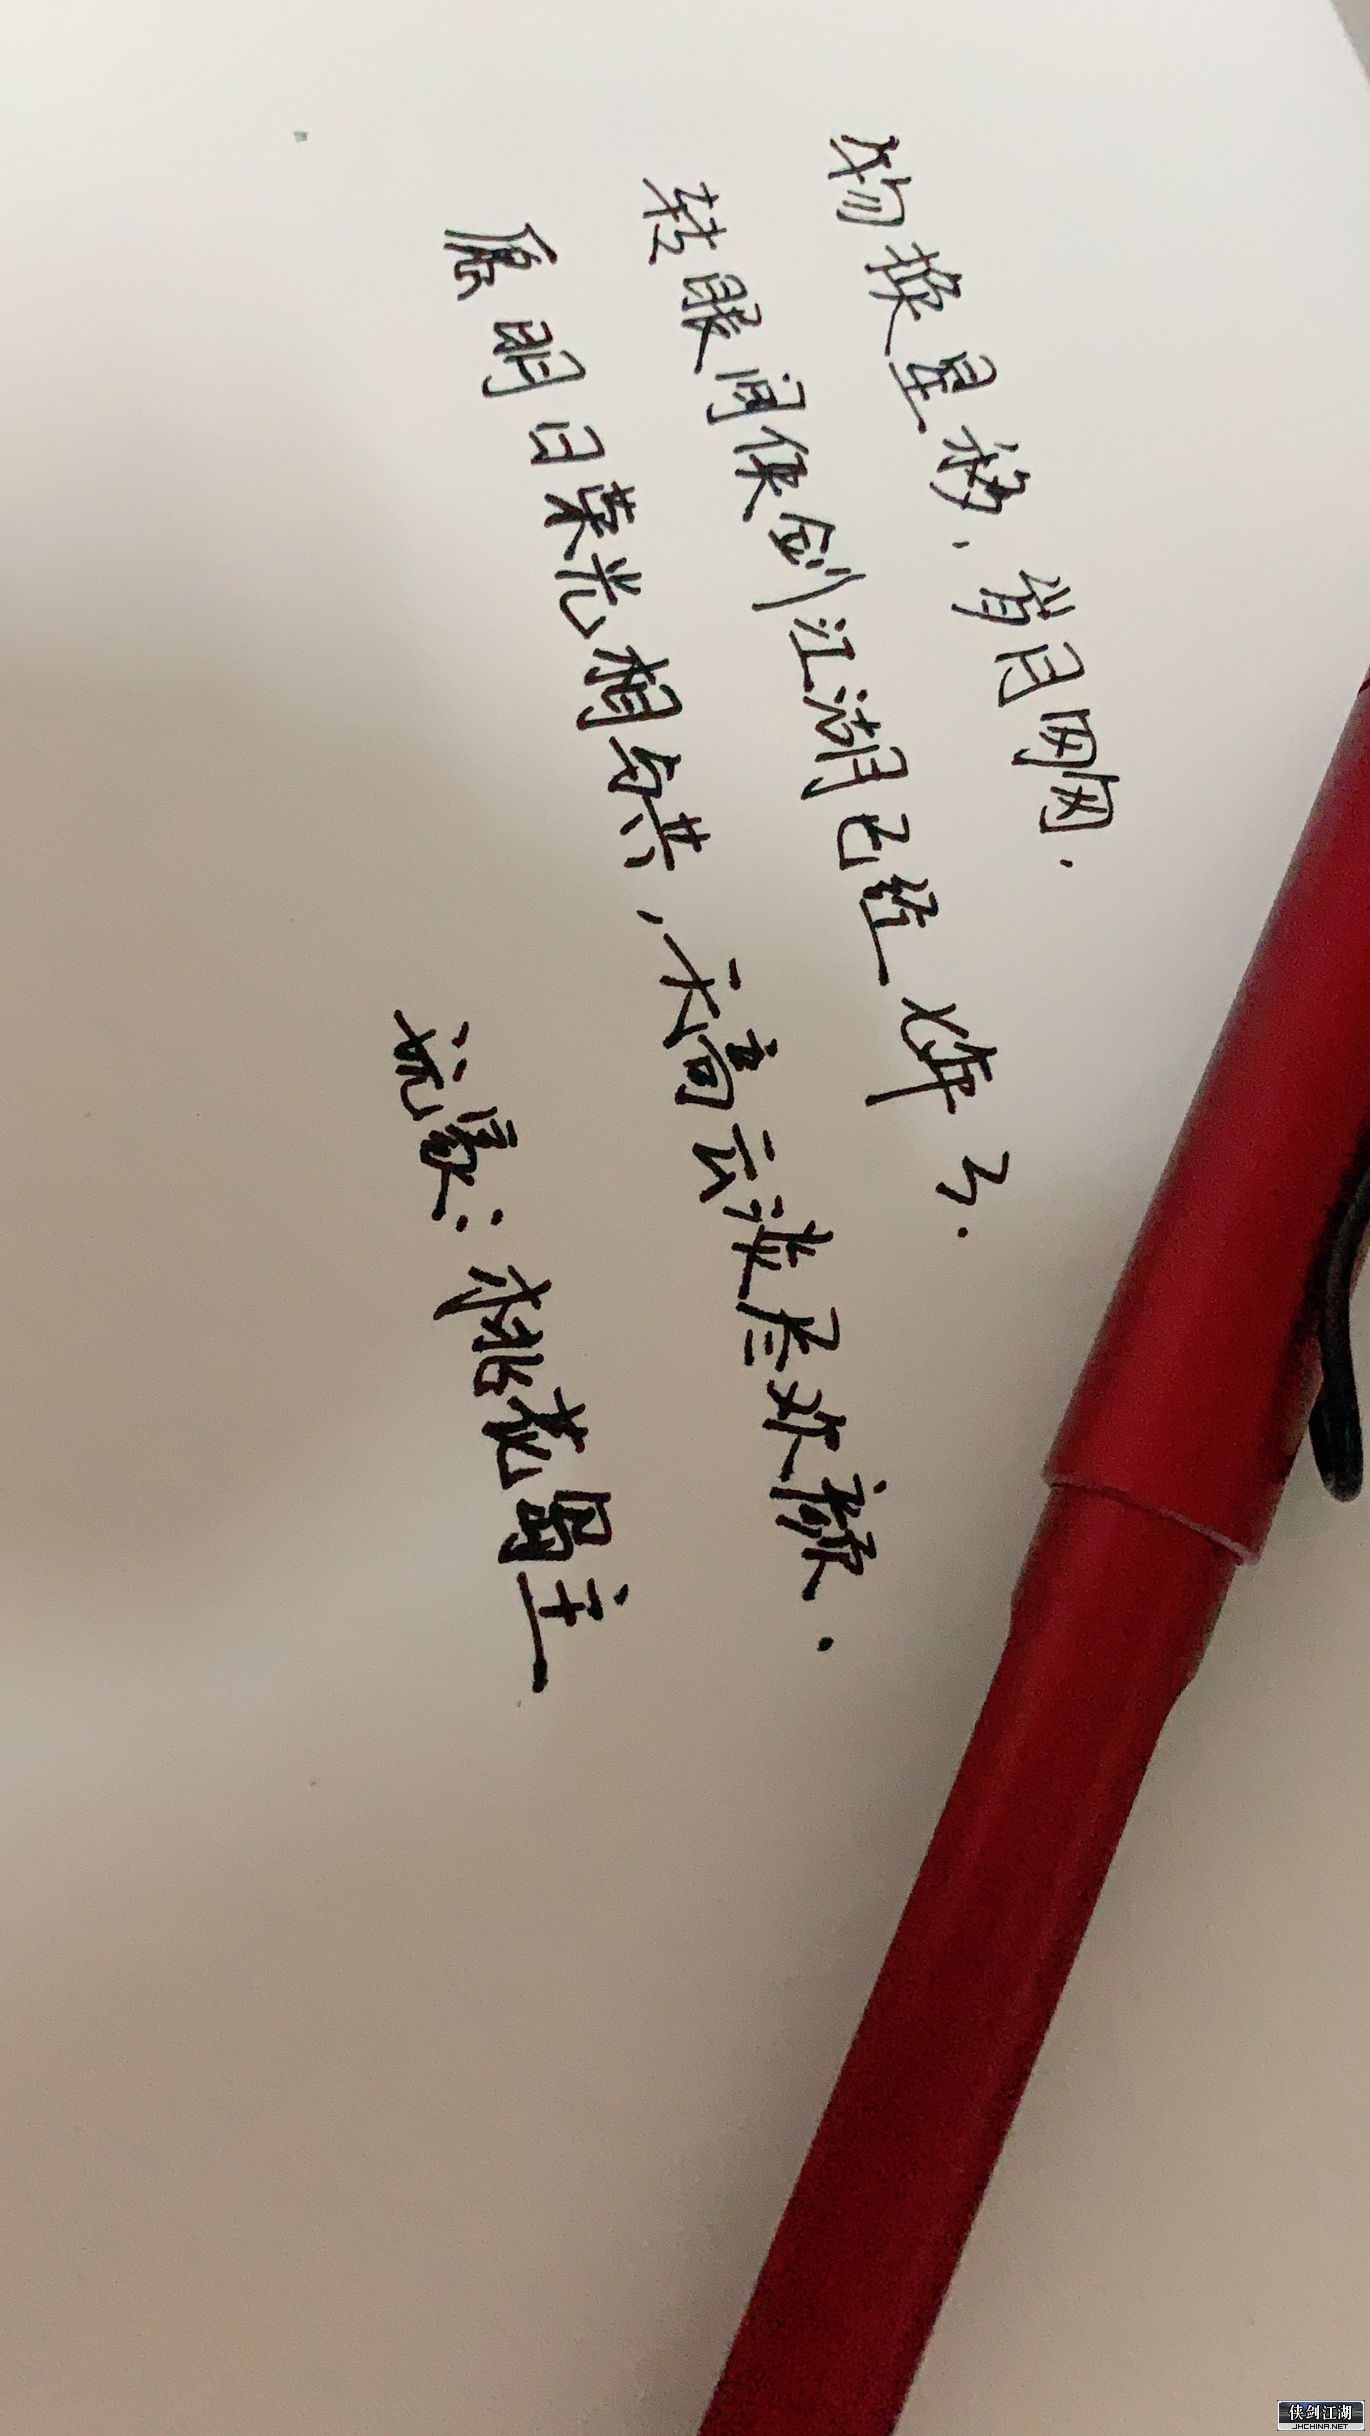 物换星移，岁月匆匆.
转眼间侠剑江湖已经七年了.
愿明日荣光相与共，天高云淡尽欢颜.
玩家：桃花岛主
侠剑江湖
JHCHINA.NET